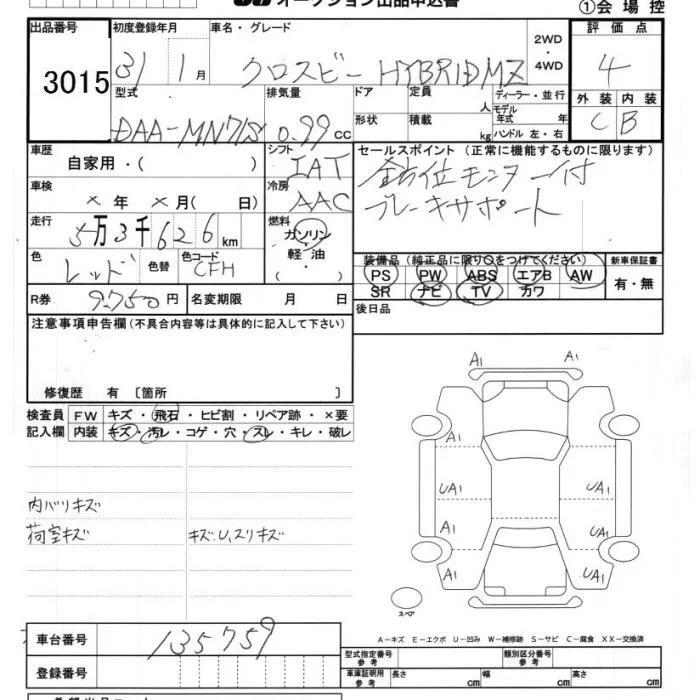 オークション出品申込書
①会場控
出品番号 初度登録年月 車名・グレード 評価点
3015 31 1月 クロスビー HYBRID MZ 2WD・4WD 4
型式 排気量 ドア 定員 ディーラー・並行 外装 内装
DAA-MN71S 0.99 CC 形状 積載 人 kg モデル年式 年 ハンドル 左・右 C B
車歴 シフト セールスポイント (正常に機能するものに限ります)
自家用・( ) IAT 全方位モニター付
車検 冷房 ブレーキサポート
×年 ×月( 日) AAC
走行 燃料
5万3千626km ガソリン・軽油・( )
色 色替 色コード 装備品 (純正品に限り○をつけてください) 新車保証書
レッド CFH PS PW ABS エアB AW 有・無
R券 9,750円 名変期限 月 日 SR ナビ TV カワ
注意事項申告欄(不具合内容等は具体的に記入して下さい) 後日品
修復歴 有 〔箇所 〕
検査員 FW キズ・飛石・ヒビ割・リペア跡・×要
記入欄 内装 キズ・汚レ・コゲ・穴・スレ・キレ・破レ
A1 A1
A1
UA1 UA1
A1 UA1
A1 UA1
内バリキズ
荷室キズ キズ、U、スリキズ
スペア
A−キズ E−エクボ U−凹み W−補修跡 S−サビ C−腐食 XX−交換済
車台番号 135759
型式指定番号 参考 類別区分番号 参考
登録番号 車庫証明用 参考 長さ cm 幅 cm 高さ cm